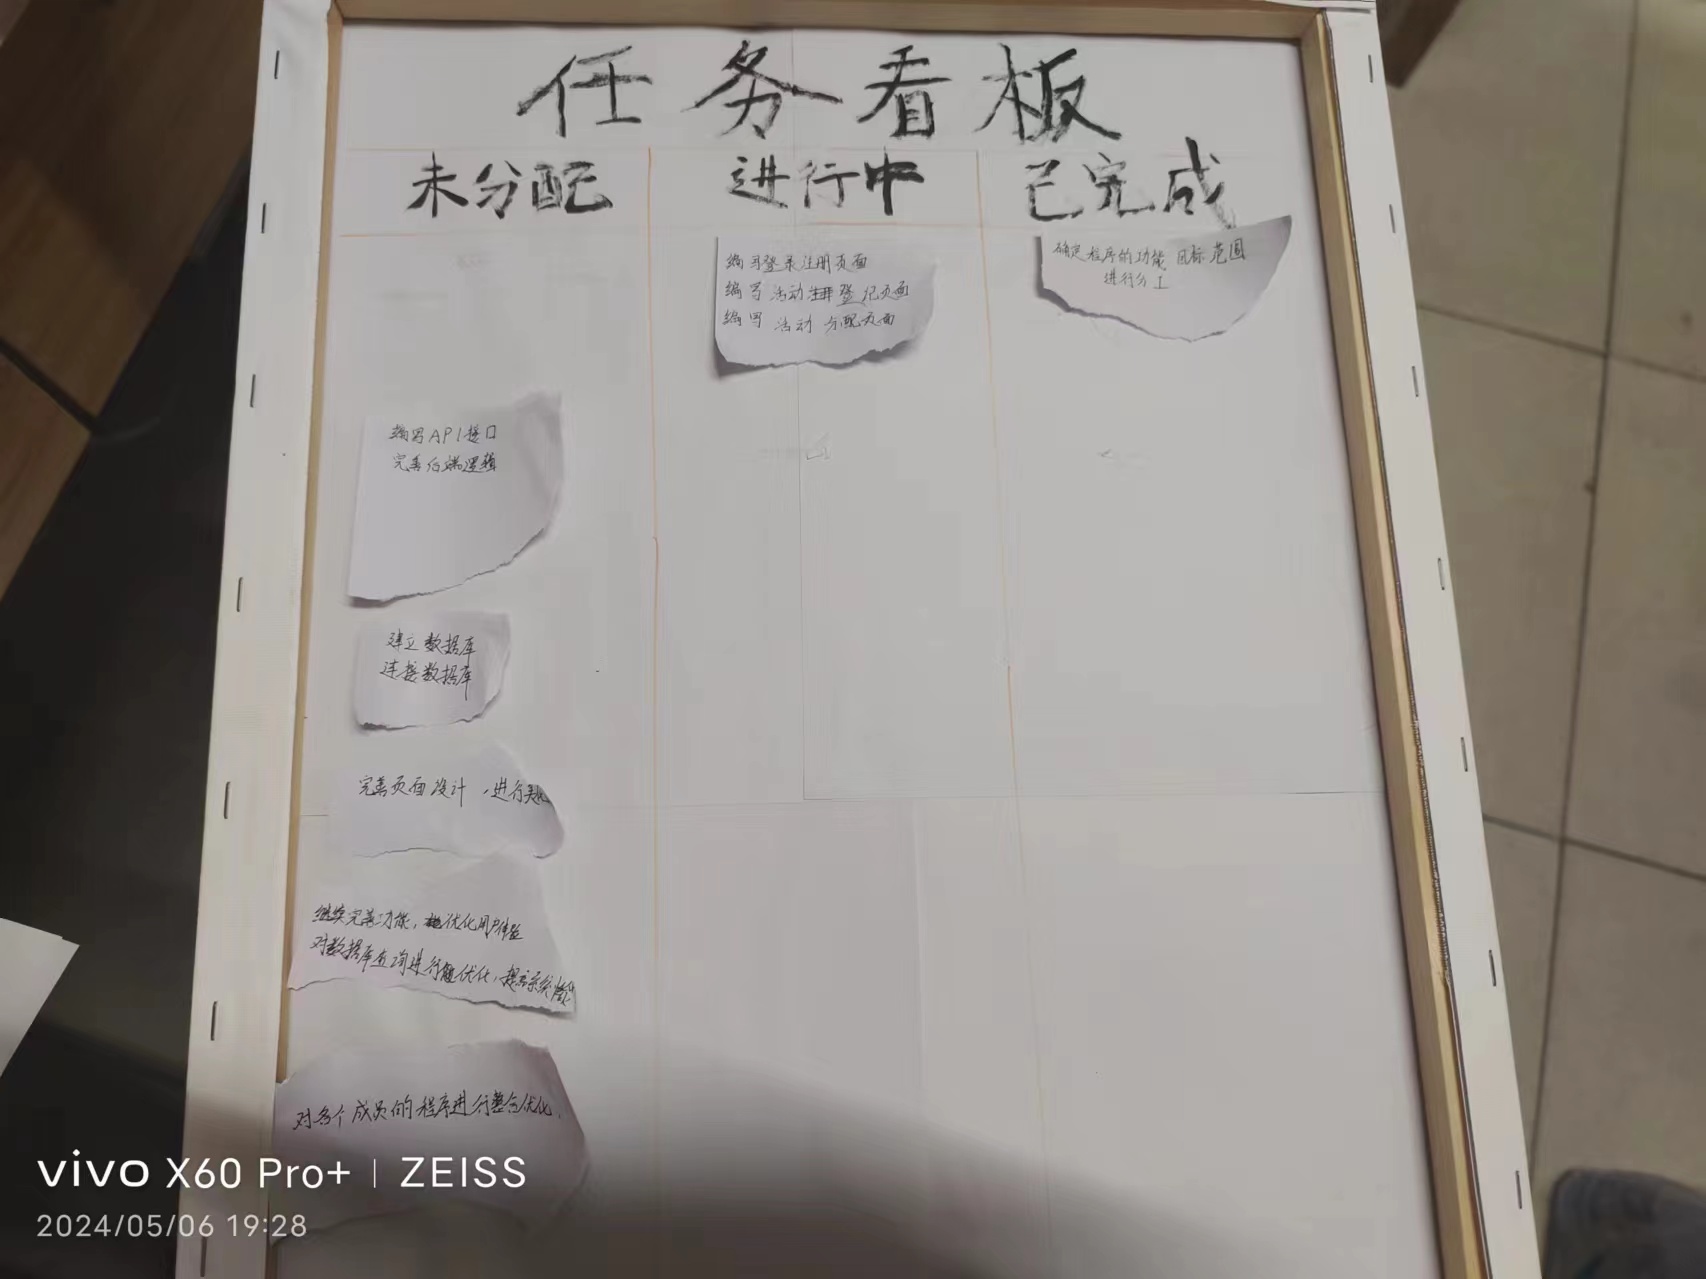 任务看板
未分配
进行中
已完成
编写API接口
完善后端逻辑
建立数据库
连接数据库
完善页面设计，进行美化
继续完善功能，优化用户体验
对数据库查询进行优化，提高系统性能
对各个成员的程序进行整合优化.
编写登录注册页面
编写 活动 登纪页面
编写 活动 分配页面
确定程序的功能 目标 范围
进行分工
vivo X60 Pro+ | ZEISS
2024/05/06 19:28